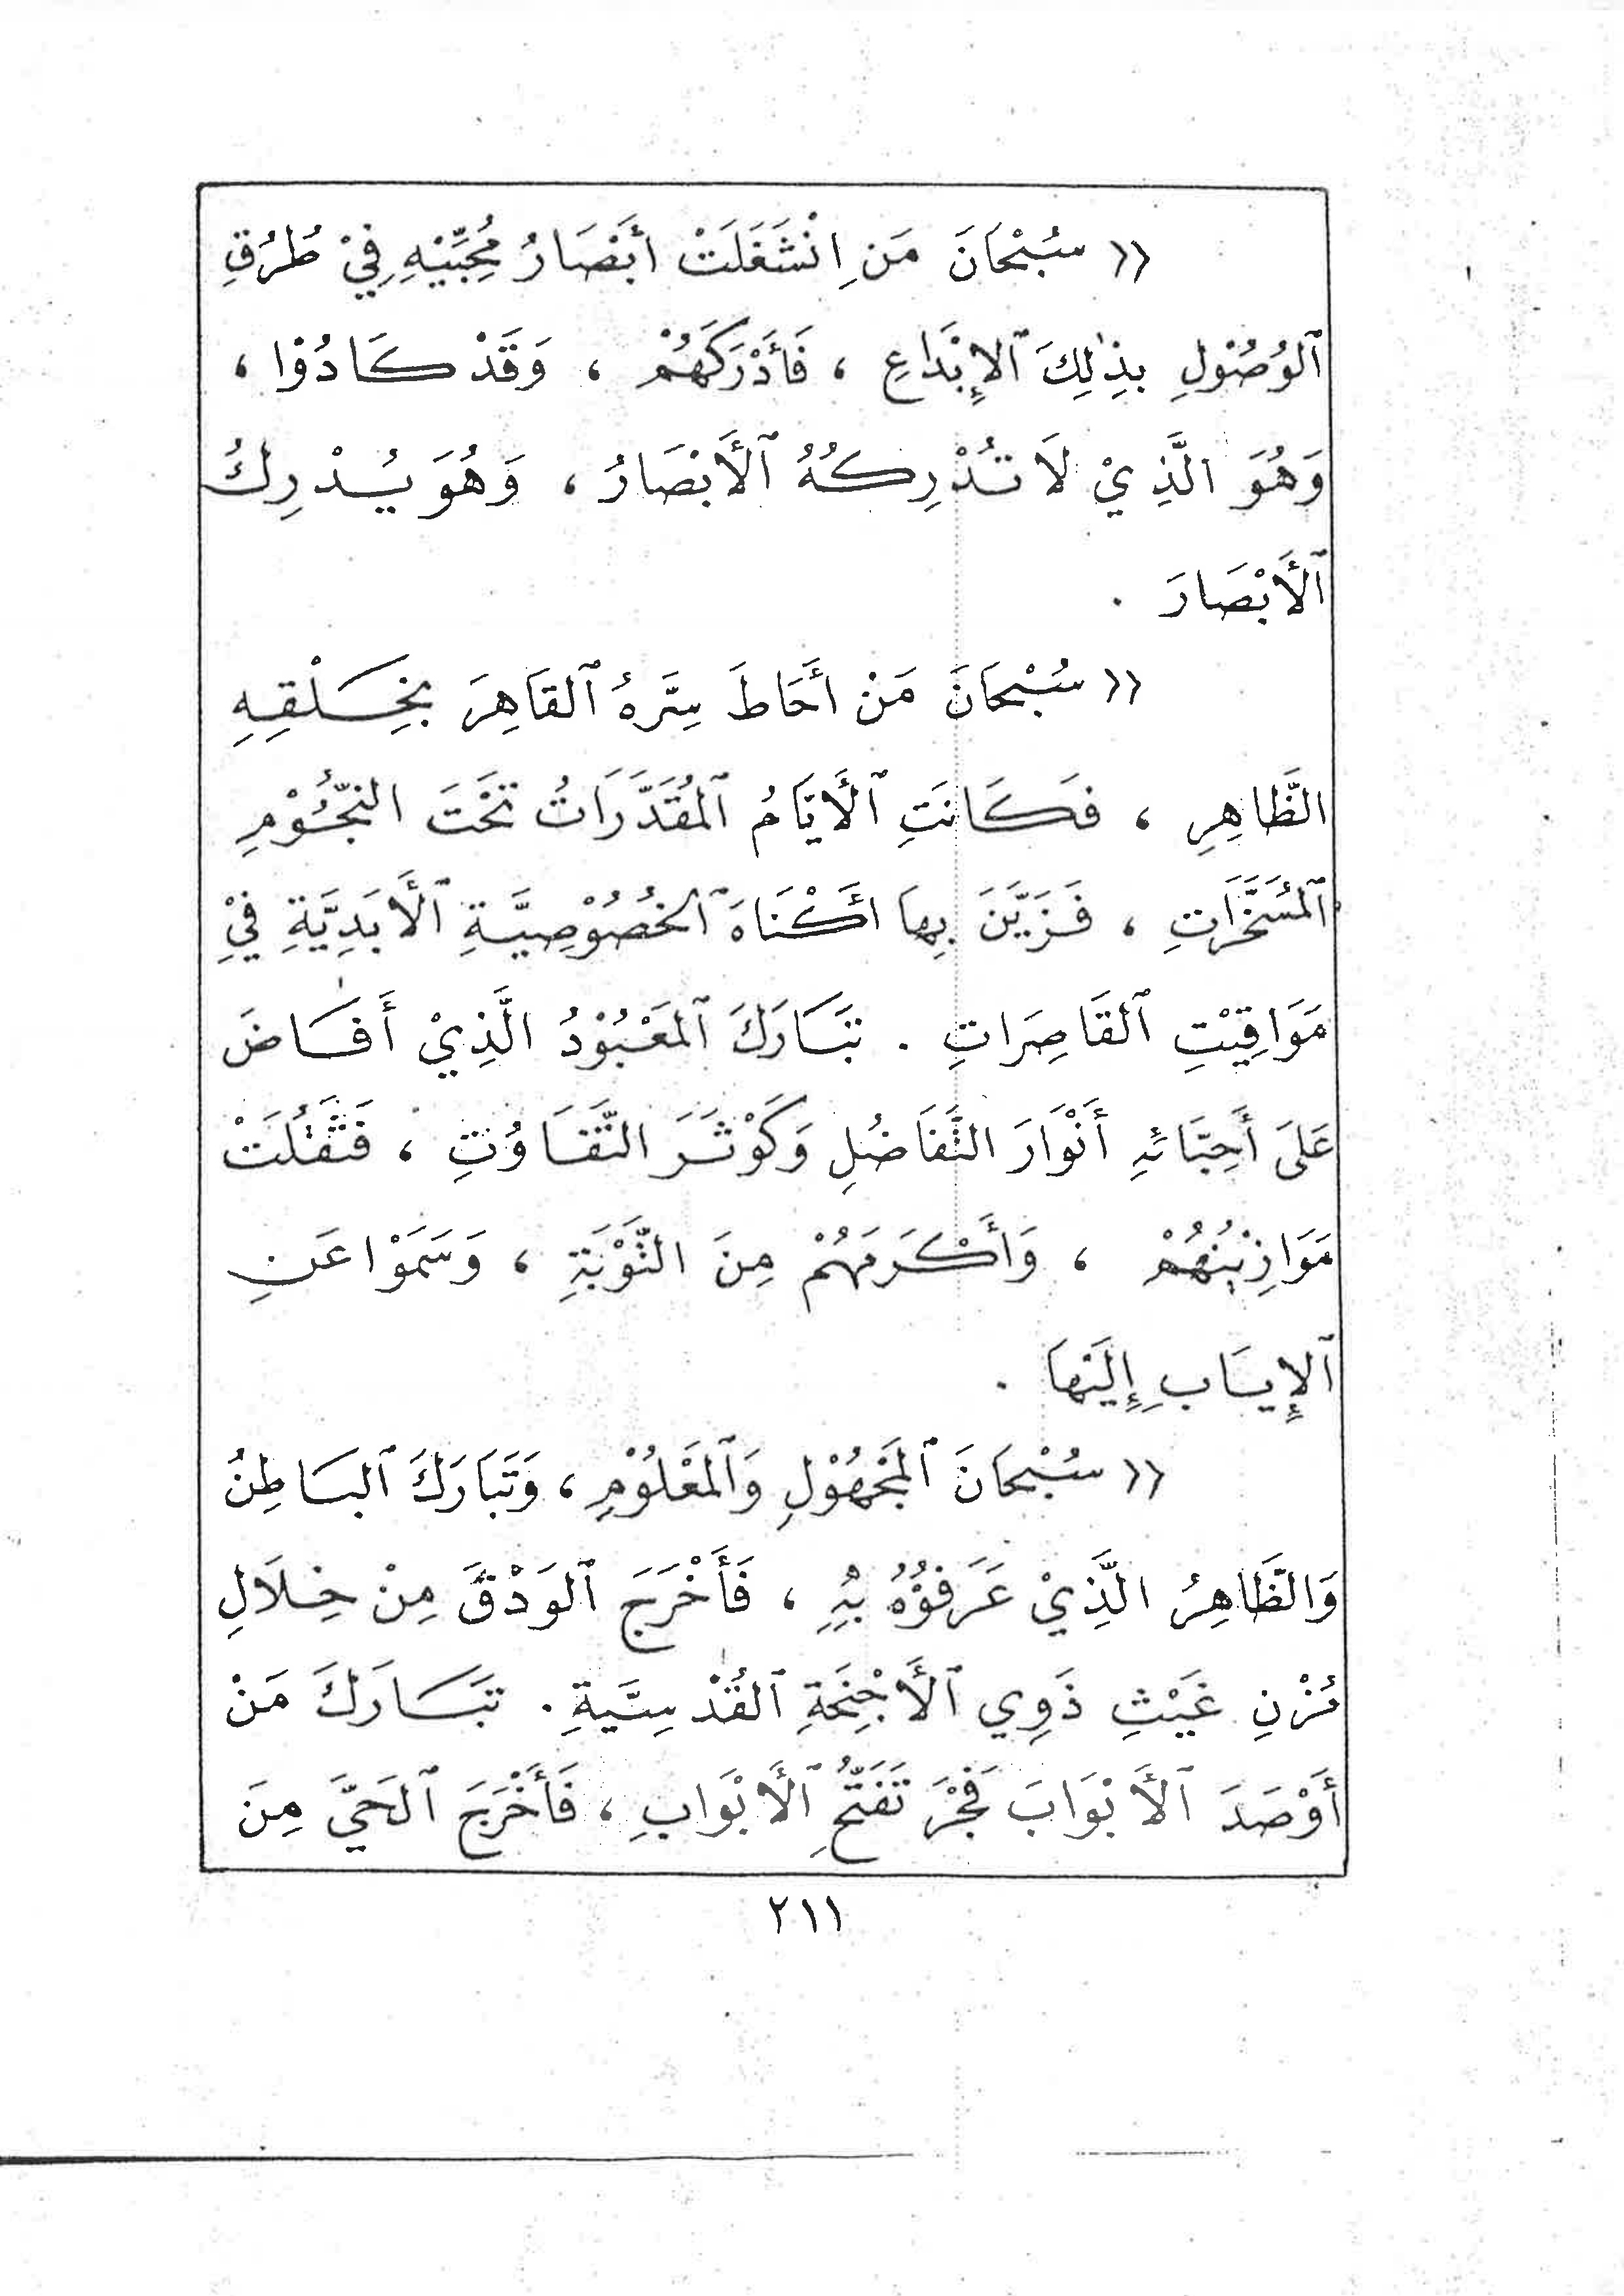 (( سُبْحَانَ مَنِ انْشَغَلَتْ أَبْصَارُ مُحِبِّيْهِ فِيْ طُرُقِ
ٱلوُصُوْلِ بِذٰلِكَ ٱلإِبْدَاعِ ، فَأَدْرَكَهُمْ ، وَقَدْ كَادُوْا ،
وَهُوَ الَّذِيْ لَا تُدْرِكُهُ ٱلأَبْصَارُ ، وَهُوَ يُدْرِكُ
ٱلأَبْصَارَ .
(( سُبْحَانَ مَنْ أَحَاطَ سِرَّهُ ٱلقَاهِرَ بِخَلْقِهِ
الظَّاهِرِ ، فَكَانَتِ ٱلأَيَّامُ ٱلمُقَدَّرَاتُ تَحْتَ النُّجُوْمِ
ٱلمُسَخَّرَاتِ ، فَزَيَّنَ بِهَا أَكْنَاهَ ٱلخُصُوْصِيَّةِ ٱلأَبَدِيَّةِ فِيْ
مَوَاقِيْتِ ٱلقَاصِرَاتِ . تَبَارَكَ ٱلمَعْبُوْدُ الَّذِيْ أَفَاضَ
عَلَى أَحِبَّائِهِ أَنْوَارَ التَّفَاضُلِ وَكَوْثَرَ التَّفَاوُتِ ، فَثَقُلَتْ
مَوَازِيْنُهُمْ ، وَأَكْرَمَهُمْ مِنَ التَّوْبَةِ ، وَسَمَوْا عَنِ
ٱلإِيَابِ إِلَيْهَا .
(( سُبْحَانَ ٱلمَجْهُوْلِ وَٱلمَعْلُوْمِ ، وَتَبَارَكَ ٱلبَاطِنُ
وَالظَّاهِرُ الَّذِيْ عَرَفُوْهُ بِهِ ، فَأَخْرَجَ ٱلوَدْقَ مِنْ خِلَالِ
مُزْنِ غَيْثِ ذَوِي ٱلأَجْنِحَةِ ٱلقُدْسِيَّةِ . تَبَارَكَ مَنْ
أَوْصَدَ ٱلأَبْوَابَ فَجْرَ تَفَتُّحِ ٱلأَبْوَابِ ، فَأَخْرَجَ ٱلحَيَّ مِنَ
٢١١